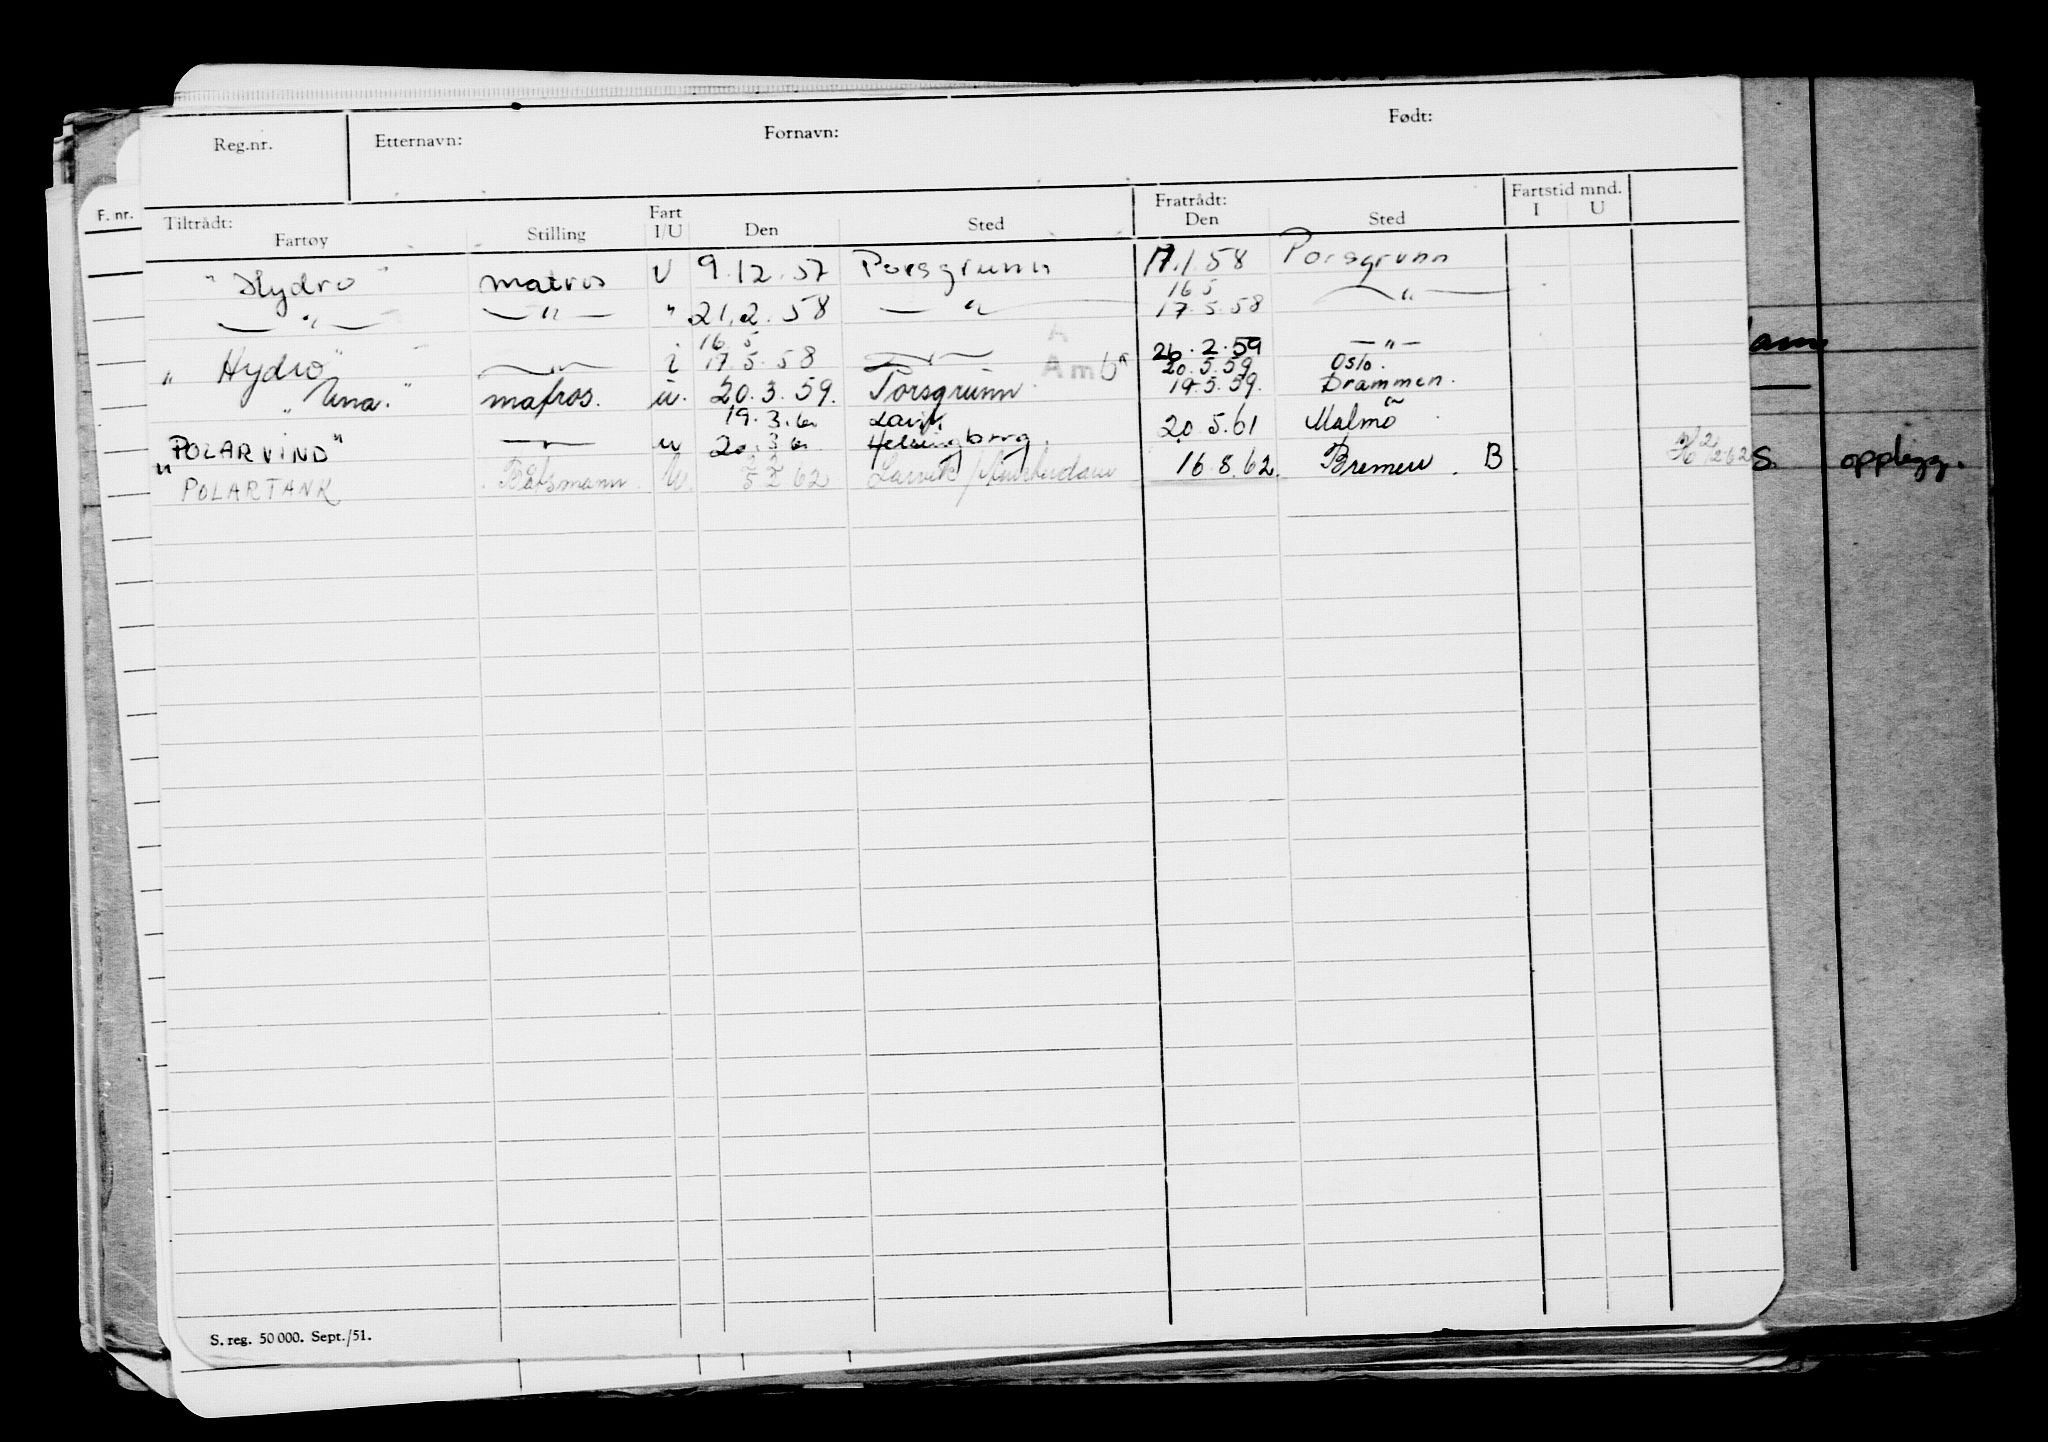 Reg.nr. Etternavn: Fornavn: Født:
F. nr. Tiltrådt: Fratrådt: Fartstid mnd.
Fartøy Stilling Fart I/U Den Sted Den Sted I U
"Hydro" matros U 9.12.57 Porsgrunn 17.1.58 Porsgrunn
— " — — " — " 21.2.58 — " — 16 5 17.5.58 — " —
16 5
"Hydro" — " — i 17.5.58 — " — 26.2.59 — " —
A
Amb
20.5.59 Oslo.
"Una." matros. u. 20.3.59. Porsgrunn 19.5.59. Drammen.
19.3.61 Larvik
"POLARVIND" — " — u 20.3.61 Helsingborg. 20.5.61 Malmö
POLARTANK Båtsmann U. 5.2.62 Larvik/Amsterdam 16.8.62. Bremen. B
am
s. opplegg.
S. reg. 50 000. Sept./51.